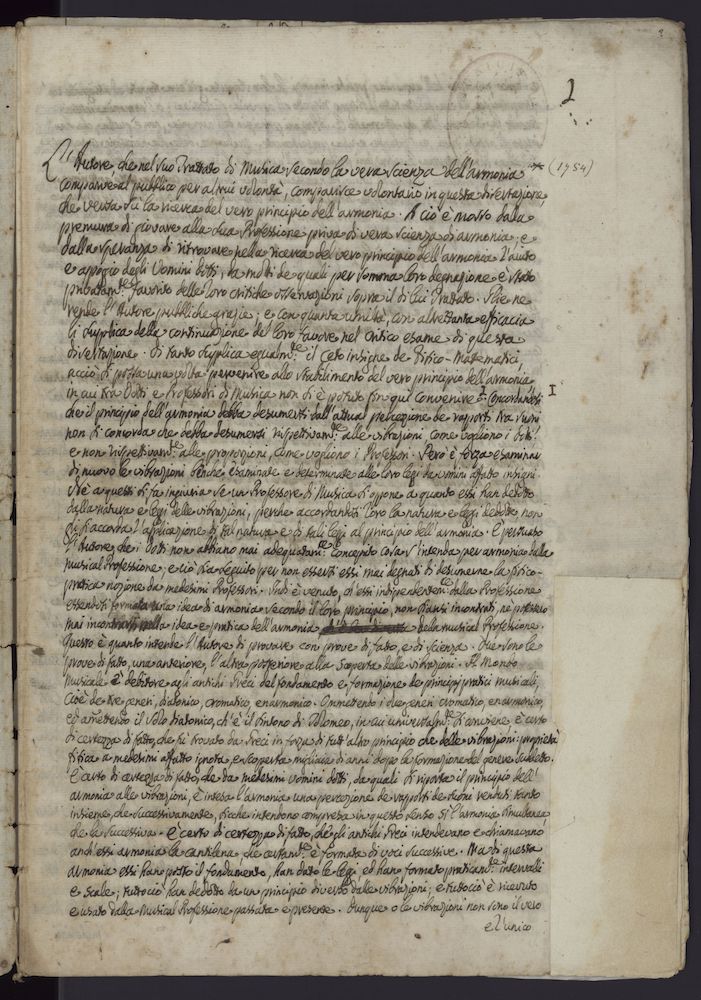 2
L'Autore, che nel suo Trattato di Musica secondo la vera scienza dell'armonia (1754)
comparve al pubblico per altrui volontà, comparisce volontario in questa dissertazione,
che versa su la ricerca del vero principio dell'armonia. A ciò è mosso dalla
premura di giovare alla sua Professione priva di vera scienza di armonia; e
dalla speranza di ritrovare nella ricerca del vero principio dell'armonia l'aiuto
e appogio degli Uomini dotti, da molti de quali per somma loro degnazione è stato
privatam.te favorito delle loro critiche osservazioni sopra il di lui Trattato. Glie ne
rende l'Autore pubbliche grazie; e con quanta umiltà, con altrettanta efficacia
li supplica della continuazione del loro favore nel critico esame di questa
dissertazione. Di tanto supplica egualm.te il ceto insigne de Fisico-Matematici,
acciò si possa una volta pervenire allo stabilimento del vero principio dell'armonia,
in cui tra Dotti e Professori di Musica non si è potuto fin qui convenire. Concordandosi I
che il principio dell'armonia debba desumersi dall'attual percezione de rapporti tra suoni
non si concorda che debba desumersi rispettivam.te alle vibrazioni come vogliono i dotti
e non rispettivam.te alle proporzioni, come vogliono i Professori. Però è forza esaminar
di nuovo le vibrazioni benche esaminate e determinate alle loro leggi da uomini affatto insigni.
Nè a questi si fa ingiuria se un Professore di Musica si oppone a quanto essi han dedotto
dalla natura e leggi delle vibrazioni, perche accordandosi loro la natura e leggi dedotte non
si accorda l'applicazione di tal natura e di tali leggi al principio dell'armonia. È persuaso
l'Autore, che i dotti non abbiano mai adeguatam.te concepito cosa s'intenda per armonia dalla
musical Professione; e ciò sia seguito per non essersi essi mai degnati di desumerne la fisico-
pratica nozione da medesimi Professori. Quindi è venuto, ch'essi indipendentem.te dalla Professione
essendosi formata una idea di armonia secondo il loro principio, non siansi incontrati, nè possano
mai incontrarsi nella idea e pratica dell'armonia della musical Professione.
Questo è quanto intende l'Autore di provare con prove di fatto, e di scienza. Due sono le
prove di fatto, una anteriore, l'altra posteriore alla scoperta delle vibrazioni. Il Mondo
Musicale è debitore agli antichi Greci del fondamento e formazione de principj pratici musicali,
cioè de tre generi, diatonico, cromatico, enarmonico. Ommettendo i due generi cromatico, enarmonico,
ed ammettendo il solo diatonico, ch'è il sintono di Tolomeo, in cui universalm.te si conviene, è certo
di certezza di fatto, che fu trovato da Greci in forza di tutt'altro principio che delle vibrazioni: proprietà
fisica a medesimi affatto ignota, e scoperta migliaia di anni dopo la formazione del genere suddetto.
È certo di certezza di fatto, che da medesimi uomini dotti, da quali si riporta il principio dell'
armonia alle vibrazioni, è intesa l'armonia una percezione de rapporti de suoni venduti tanto
insieme, che successivamente, sicche intendono compresa in questo senso sì l'armonia simultanea
che la successiva. È certo di certezza di fatto, che gli antichi Greci intendevano e chiamavano
anch'essi armonia la cantilena, che certam.te è formata di voci successive. Ma di questa
armonia essi han posto il fondamento, han dato le leggi, ed han formato praticam.te intervalli
e scale; tuttociò han dedotto da un principio diverso dalle vibrazioni; e tuttociò è ricevuto
e usato dalla Musical Professione passata e presente. Dunque o le vibrazioni non sono il vero
e l'unico